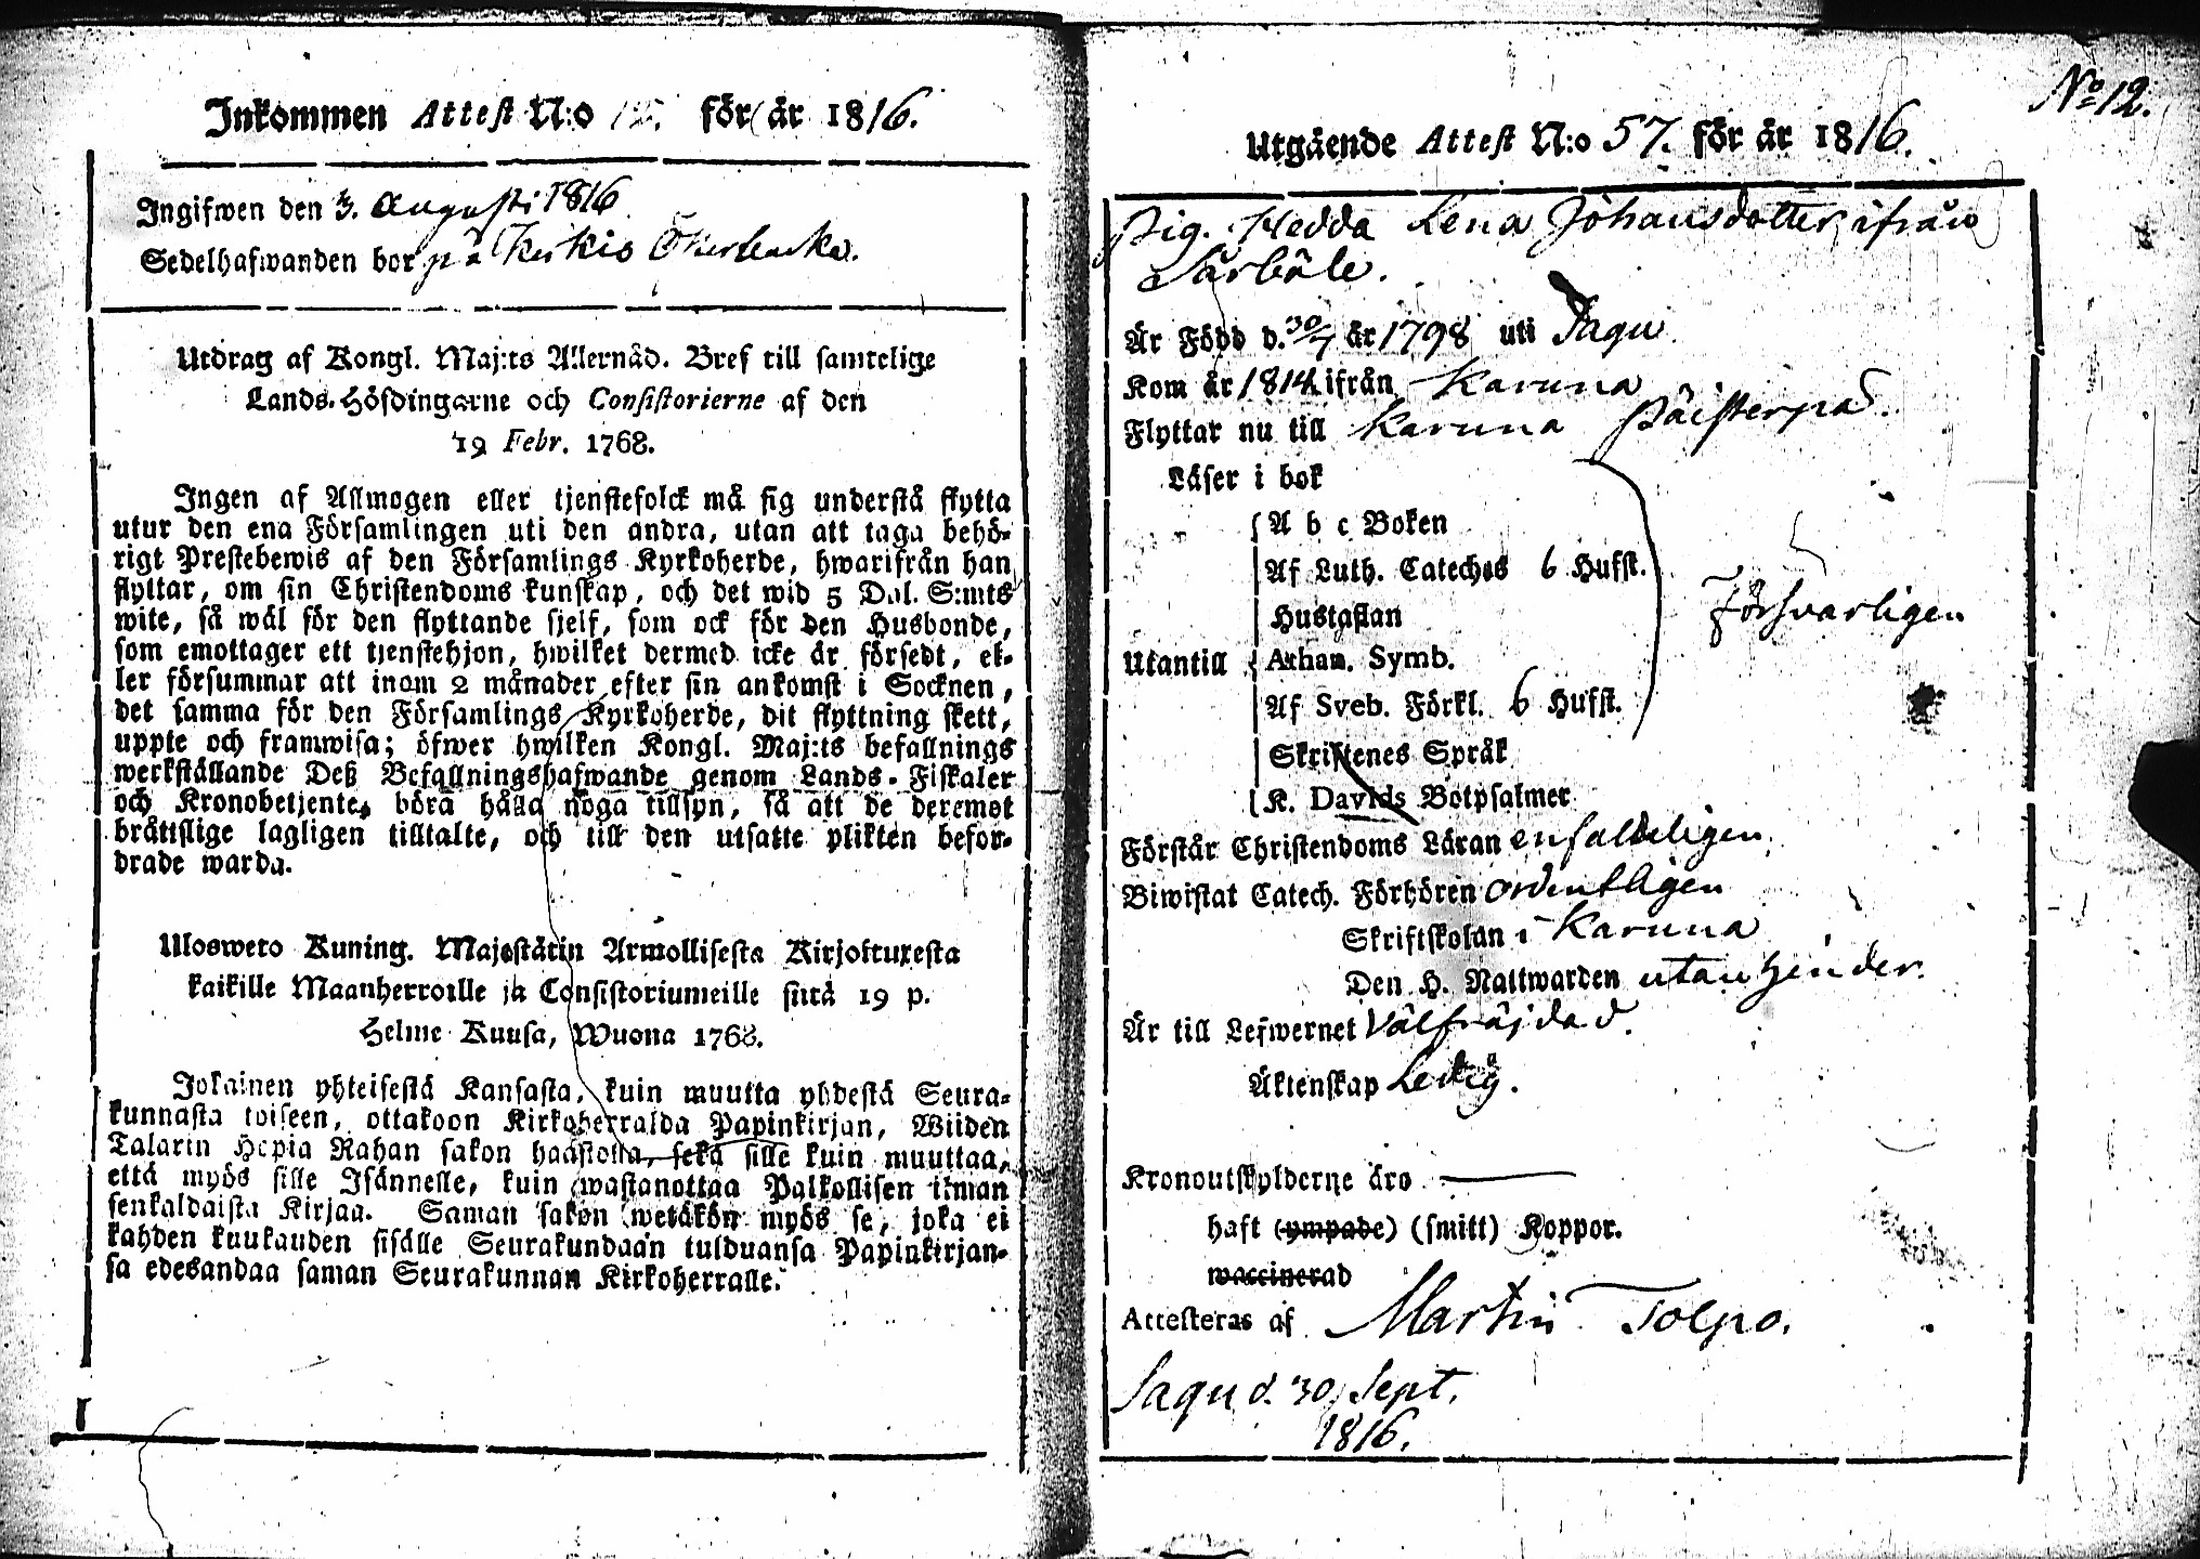 Inkommen Attest N:o 12. för år 1816.
Ingifwen den 3. Augusti 1816
Sedelhafwanden bor på Kirkis Åkerbacka.
Utdrag af Kongl. Maj:ts Allernåd. Bref till samtelige
Lands-Höfdingarne och Consistorierne af den
19 Febr. 1768.
Ingen af Allmogen eller tjenstefolck må sig understå flytta
utur den ena Församlingen uti den andra, utan att taga behö-
rigt Prestebewis af den Församlings Kyrkoherde, hwarifrån han
flyttar, om sin Christendoms kunskap, och det wid 5 Dal. S:mts
wite, så wäl för den flyttande sjelf, som ock för den Husbonde,
som emottager ett tjenstehjon, hwilket dermed icke är försedt, el-
ler försummar att inom 2 månader efter sin ankomst i Socknen,
det samma för den Församlings Kyrkoherde, dit flyttning skett,
uppte och framwisa; öfwer hwilken Kongl. Maj:ts befallnings
werkställande Deß Befallningshafwande genom Lands-Fiskaler
och Kronobetjente, böra hålla noga tillsyn, så att de deremot
bråttslige lagligen tilltalte, och till den utsatte plikten befor-
drade warda.
Uloswero Kuning. Majestätin Armollisesta Kirjoituxesta
kaikille Maanherroille ja Consistoriumeille siitä 19 p.
Helme Kuusa, Wuona 1768.
Jokainen yhteisestä Kansasta, kuin muutta yhdestä Seura-
kunnasta toiseen, ottakoon Kirkoherralda Papinkirjan, Wiiden
Talarin Hopia Rahan sakon haastolla, sekä sille kuin muuttaa,
että myös sille Isännelle, kuin wastanottaa Palkollisen ilman
senkaldaista Kirjaa. Saman sakon wetäkön myös se, joka ei
kahden kuukauden sisälle Seurakundaan tulduansa Papinkirjan-
sa edesandaa saman Seurakunnan Kirkoherralle.
No 12.
Utgående Attest N:o 57. för år 1816.
Pig. Hedda Lena Johansdotter ifrån
Särböle.
Är Född d. 30/7 år 1798 uti Sagu
Kom år 1814 ifrån Karuna
Flyttar nu till Karuna Päisterpä.
Läser i bok
A b c Boken
Af Luth. Cateches 6 Hufst.
Hustaflan
Utantill Athan. Symb.
Af Sveb. Förkl. 6 Hufst.
Försvarligen
Skriftenes Språk
K. Davids Botpsalmer
Förstår Christendoms Läran enfaldeligen
Biwistat Catech. Förhören ordentligen
Skriftskolan i Karuna
Den H. Nattwarden utan hinder.
Är till Lefwernet Välfräjdad.
Äktenskap Ledig.
Kronoutskylderne äro
haft (ympade) (smitt) Koppor.
waccinerad
Attesteras af Martin Tolpo.
Sagu d. 30 Sept.
1816.